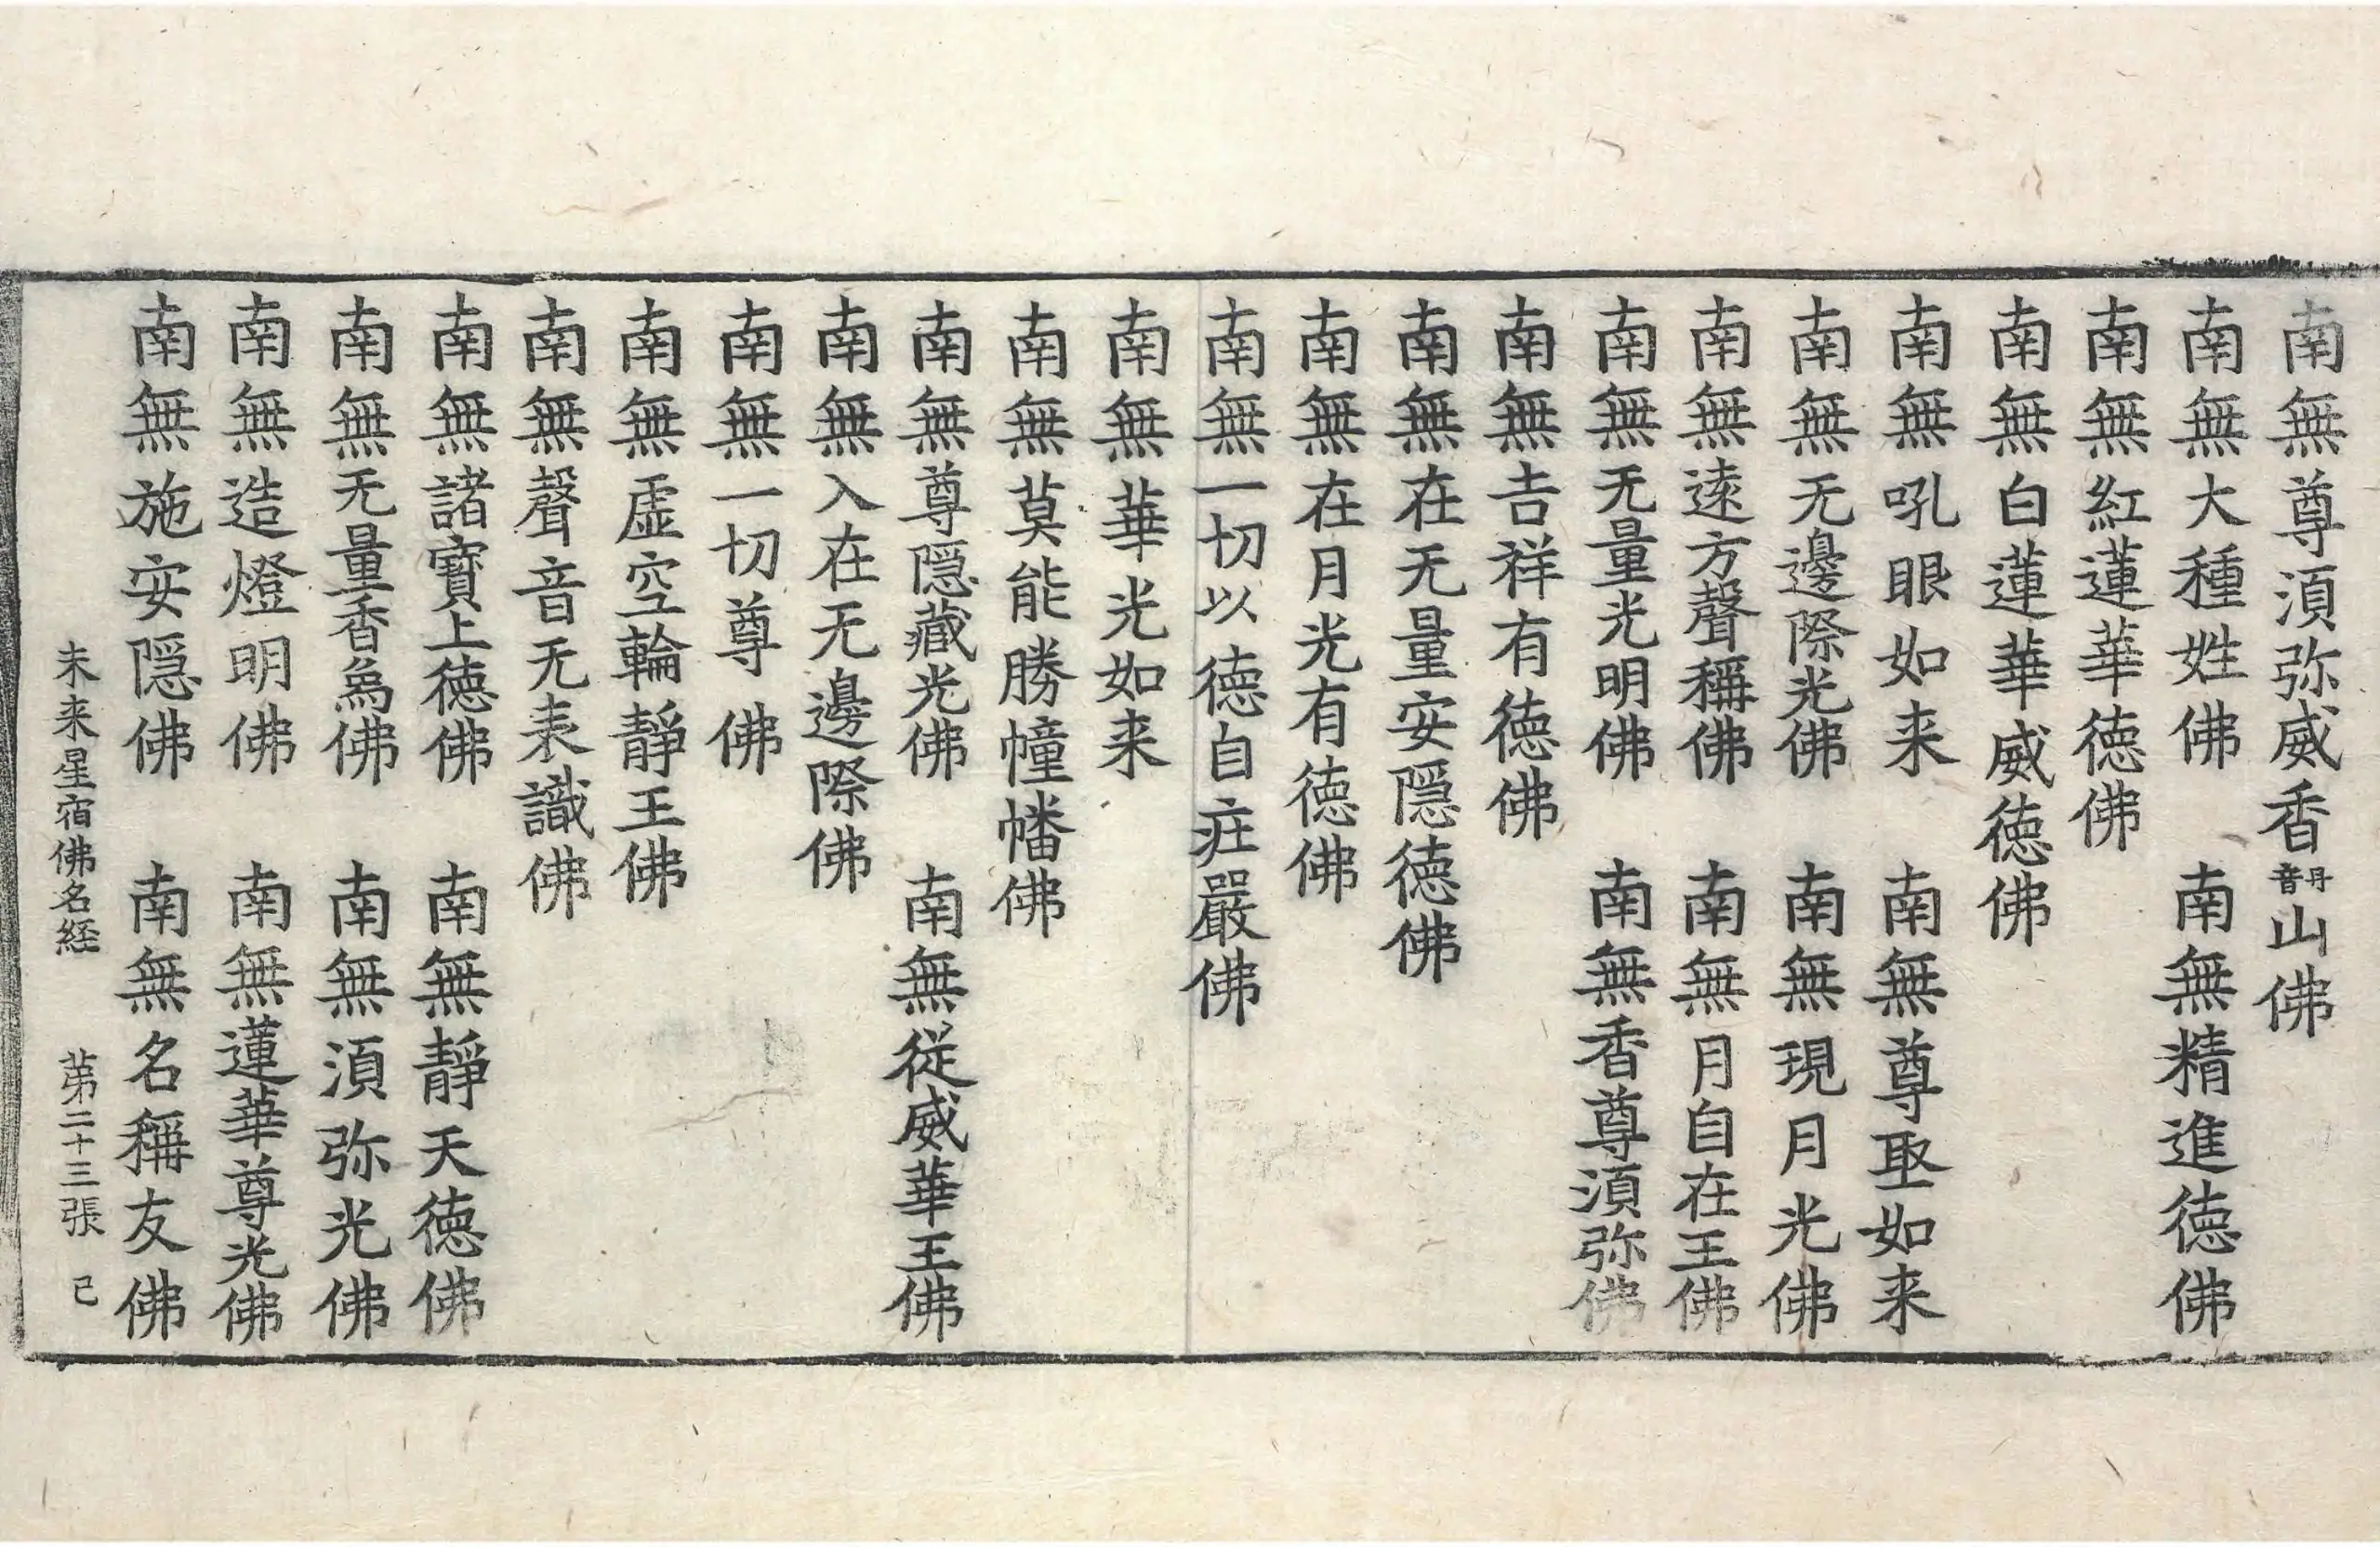 南無尊須弥威香丹音山佛
南無大種姓佛　南無精進德佛
南無紅蓮華德佛
南無白蓮華威德佛
南無吼眼如来　南無尊聚如来
南無无邊際光佛　南無現月光佛
南無逺方聲稱佛　南無月自在王佛
南無无量光明佛　南無香尊須弥佛
南無吉祥有德佛
南無在无量安隱德佛
南無在月光有德佛
南無一切以德自庄嚴佛
南無華光如来
南無莫能勝幢幡佛
南無尊隱藏光佛　南無從威華王佛
南無入在无邊際佛
南無一切尊佛
南無虛空輪靜王佛
南無聲音无表識佛
南無諸寶上德佛　南無靜天德佛
南無无量香烏佛　南無須弥光佛
南無造燈明佛　南無蓮華尊光佛
南無施安隱佛　南無名稱友佛
未来星宿佛名経　苐二十三張　己